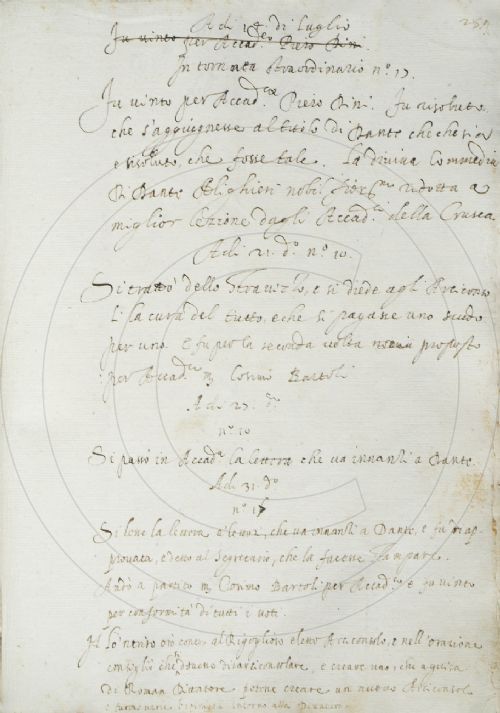 A dì 18 di Luglio
Fu vinto per Accad.co Piero Dini.
In tornata straordinario n.o 17.
Fu vinto per Accad.co Piero Dini. Fu risoluto,
che s'aggiugnesse al titolo di Dante che che sia
e risoluto, che fosse tale. La divina Commedia
Di Dante Alighieri nobil fior.no ridotta a
miglior lezione dagli Accad.ci della Crusca
A dì 21. d.o n.o 10.
Si trattò dello Stravizzo, e si diede agli Arciconso
li la cura del tutto, e che si pagasse uno scudo
per uno. E fu per la seconda volta proposto
per Accad.co Cosimo Bartoli
A dì 27. d.o
n.o 10
Si passò in Accad.a la lettera che va innanzi a Dante.
A dì 31. d.o
n.o
Si lesse la lettera a' lettori, che va innanzi a Dante, e fu di ap
provata, e detto al Segretario, che la facesse stampare.
Andò a partito Cosimo Bartoli per Accad.co e fu vinto
per conformità di tutti i voti.
Arciconsolo, e nell'orazione
e creare uno, che
di creare un nuovo Arciconsol
intorno alla